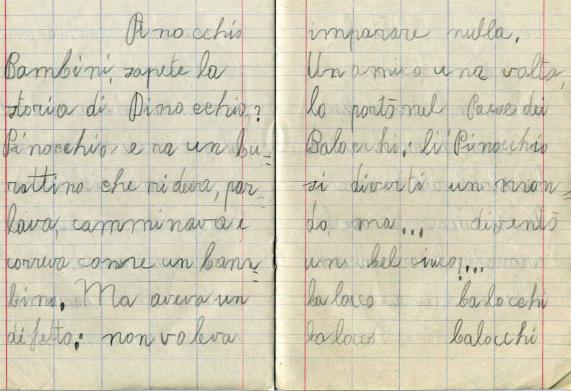 Pinocchio
Bambini sapete la
storia di Pinocchio?
Pinocchio era un bu=
rattino che rideva, par=
lava, camminava e
correva come un bam=
bino. Ma aveva un
difetto: non voleva
imparare nulla.
Un amico, una volta,
lo portò nel Paese dei
Balocchi: lì Pinocchio
si divertì un mon=
do, ma... diventò
un bel ciuco!...
balocco balocchi
balocco balocchi